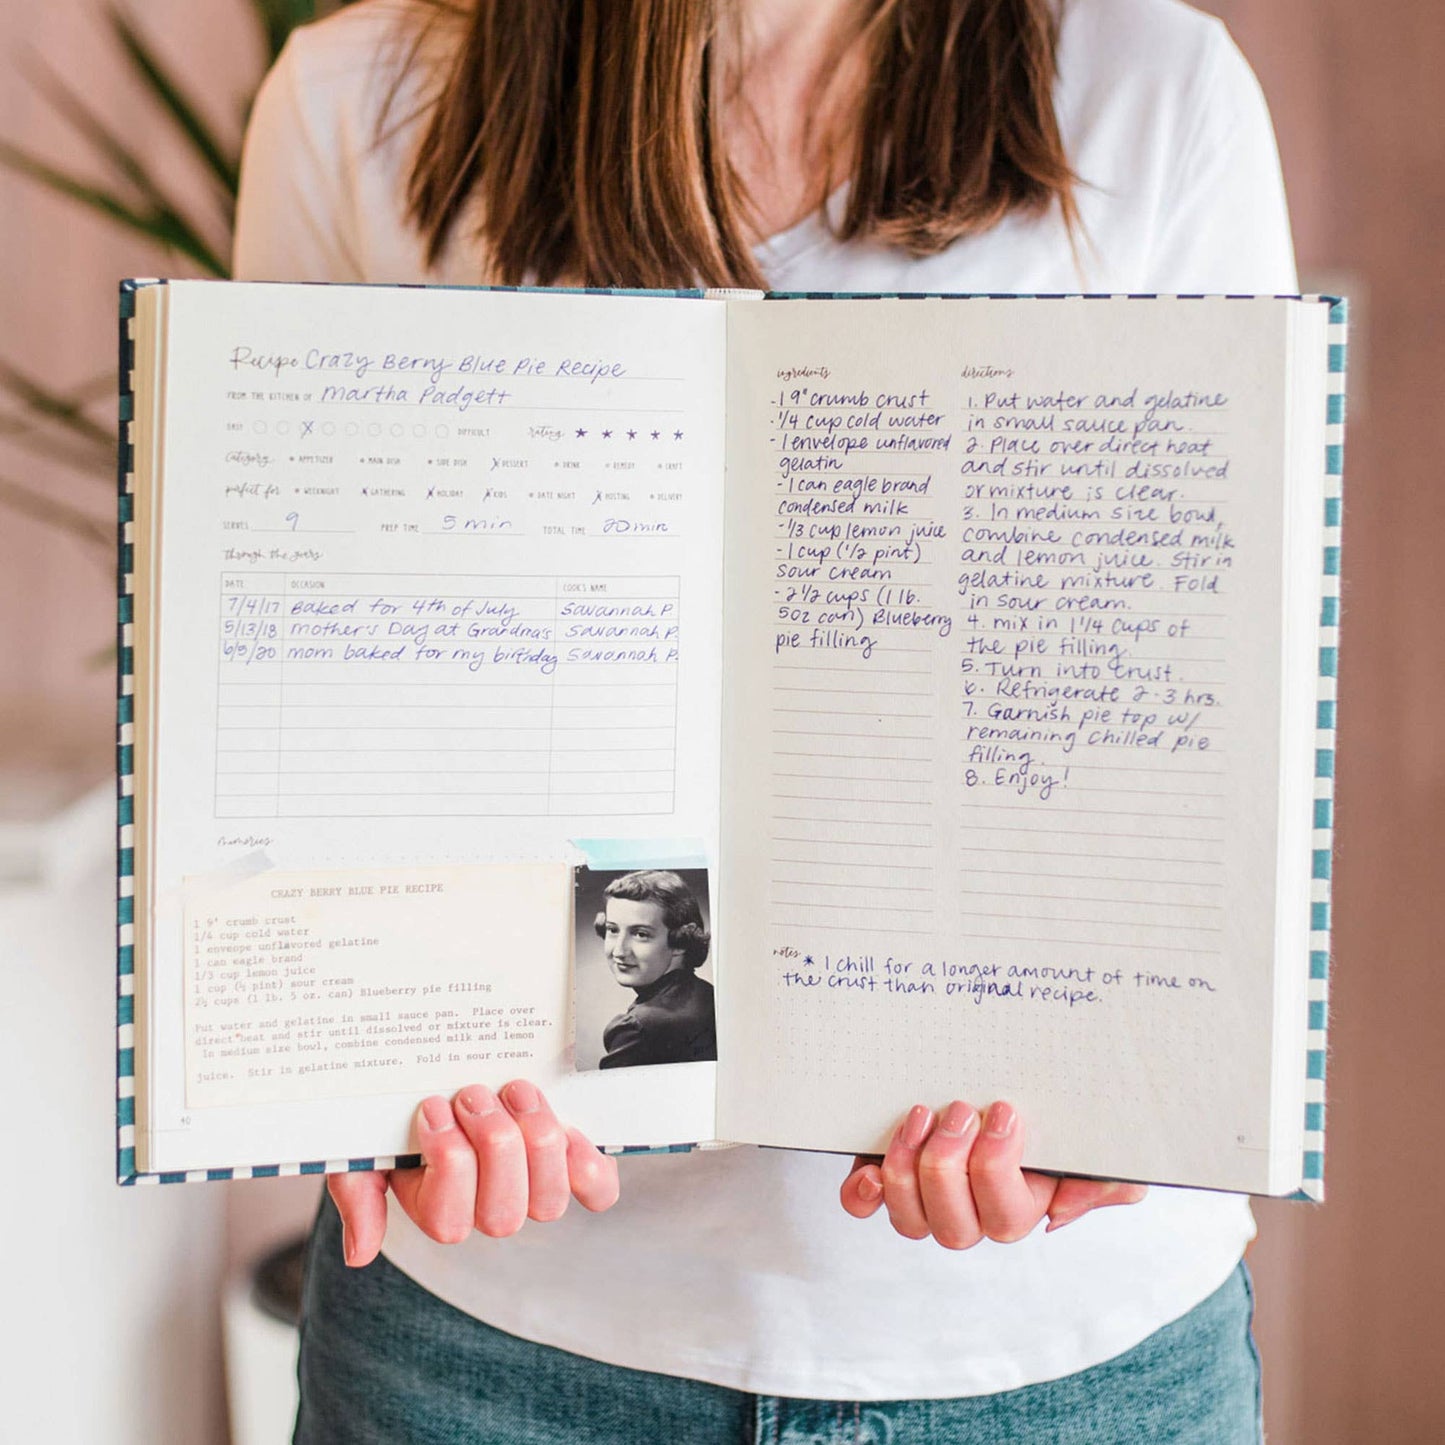 Recipe Crazy Berry Blue Pie Recipe
FROM THE KITCHEN OF Martha Padgett
EASY DIFFICULT rating
category APPETIZER MAIN DISH SIDE DISH DESSERT DRINK REMEDY CRAFT
perfect for WEEKNIGHT GATHERING HOLIDAY KIDS DATE NIGHT HOSTING DELIVERY
SERVES 9 PREP TIME 5 min TOTAL TIME 20 min
through the years
DATE OCCASION COOK'S NAME
7/4/17 Baked for 4th of July Savannah P.
5/13/18 Mother's Day at Grandma's Savannah P.
6/3/20 mom baked for my birthday Savannah P.
memories
CRAZY BERRY BLUE PIE RECIPE
1 9" crumb crust
1/4 cup cold water
1 enveope unflavored gelatine
1 can eagle brand
1/3 cup lemon juice
1 cup (½ pint) sour cream
2½ cups (1 lb. 5 oz. can) Blueberry pie filling
Put water and gelatine in small sauce pan. Place over
direct heat and stir until dissolved or mixture is clear.
In medium size bowl, combine condensed milk and lemon
juice. Stir in gelatine mixture. Fold in sour cream.
40
ingredients
-1 9" crumb crust
-1/4 cup cold water
-1 envelope unflavored
gelatin
-1 can eagle brand
condensed milk
-1/3 cup lemon juice
-1 cup (1/2 pint)
sour cream
-2 1/2 cups (1 lb.
5oz can) Blueberry
pie filling
directions
1. Put water and gelatine
in small sauce pan.
2. Place over direct heat
and stir until dissolved
or mixture is clear.
3. In medium size bowl,
combine condensed milk
and lemon juice. Stir in
gelatine mixture. Fold
in sour cream.
4. mix in 1 1/4 cups of
the pie filling.
5. Turn into crust.
6. Refrigerate 2-3 hrs.
7. Garnish pie top w/
remaining chilled pie
filling.
8. Enjoy!
notes
* I chill for a longer amount of time on
the crust than original recipe.